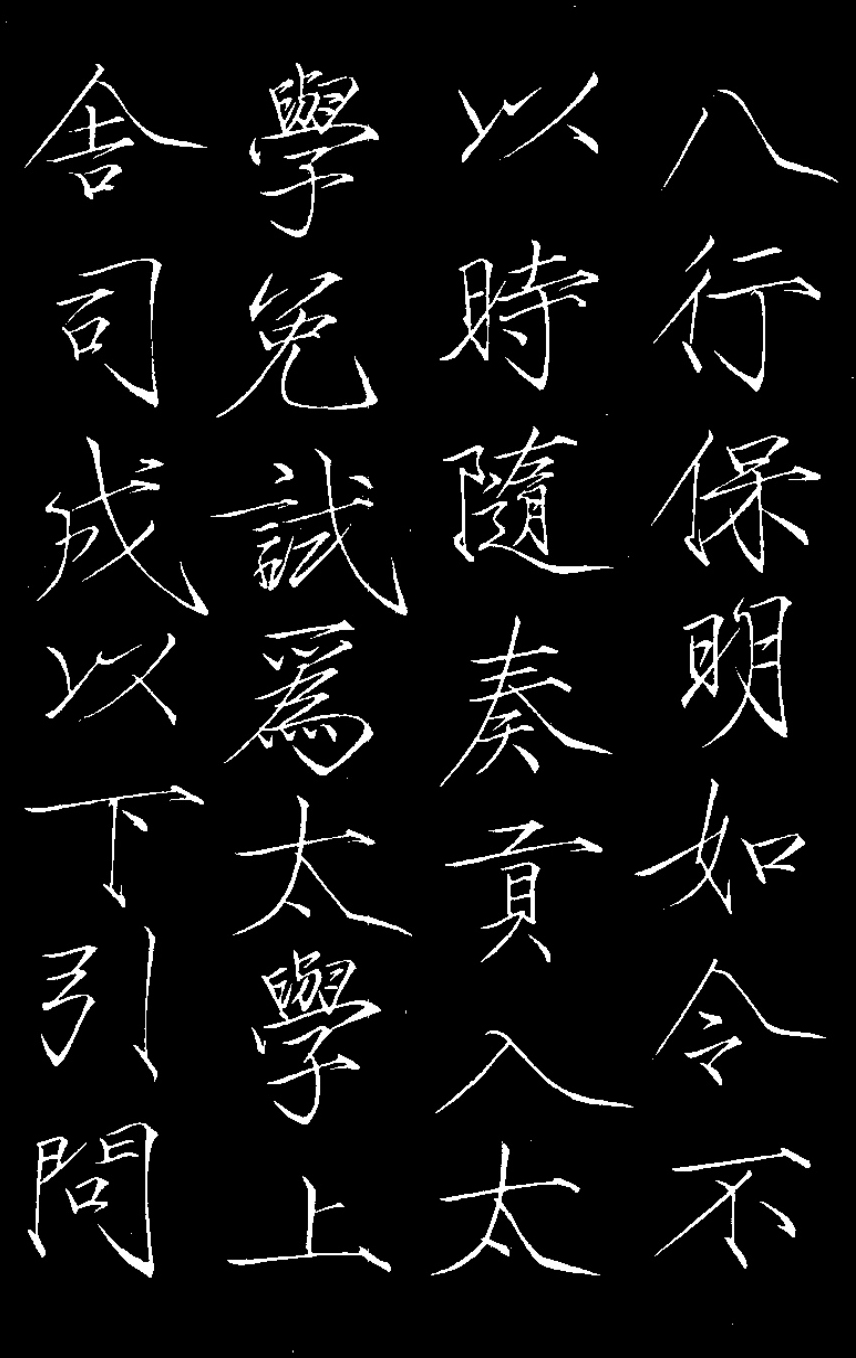 八行保明如令不
以時隨奏貢入太
學免試為太學上
舍司成以下引問